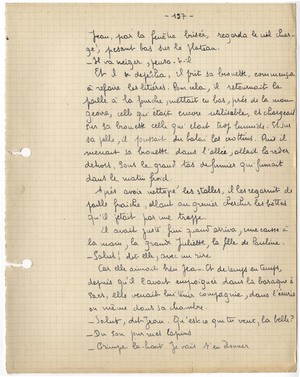 - 197 -
Jean, par la fenêtre brisée, regarda le ciel char-
gé, pesant bas sur le plateau.
- Il va neiger, pensa-t-il
Et il se dépêcha, il prit sa brouette, commença
à refaire les litières. Pour cela, il retournait la
paille à la fourche, mettait en tas, près de la mange-
oire, celle qui était encore utilisable, et chargeait
sur sa brouette celle qui était trop humide. Et sur
sa pelle, il poussait du balai les crottins. Puis il
menait sa brouette dans l'allée, allait la vider
dehors, sous le grand tas de fumier qui fumait
dans le matin froid.
Après avoir nettoyé les stalles, il les regarnit de
paille fraîche, allant au grenier chercher les bottes
qu'il jetait par une trappe.
Il avait juste fini quand arriva, une casse à
la main, la grande Juliette, la fille de Pauline.
- Salut! dit-elle, avec un rire
Car elle aimait bien Jean. Et de temps en temps,
depuis qu'il l'avait empoignée dans la baraque à
elle venait lui tenir compagnie, dans l'écurie
ou même dans sa chambre
- Salut, dit Jean. Qu'est-ce que tu veux, la belle?
- Du son pour mes lapins
- Grimpe là-haut. Je vais t'en donner